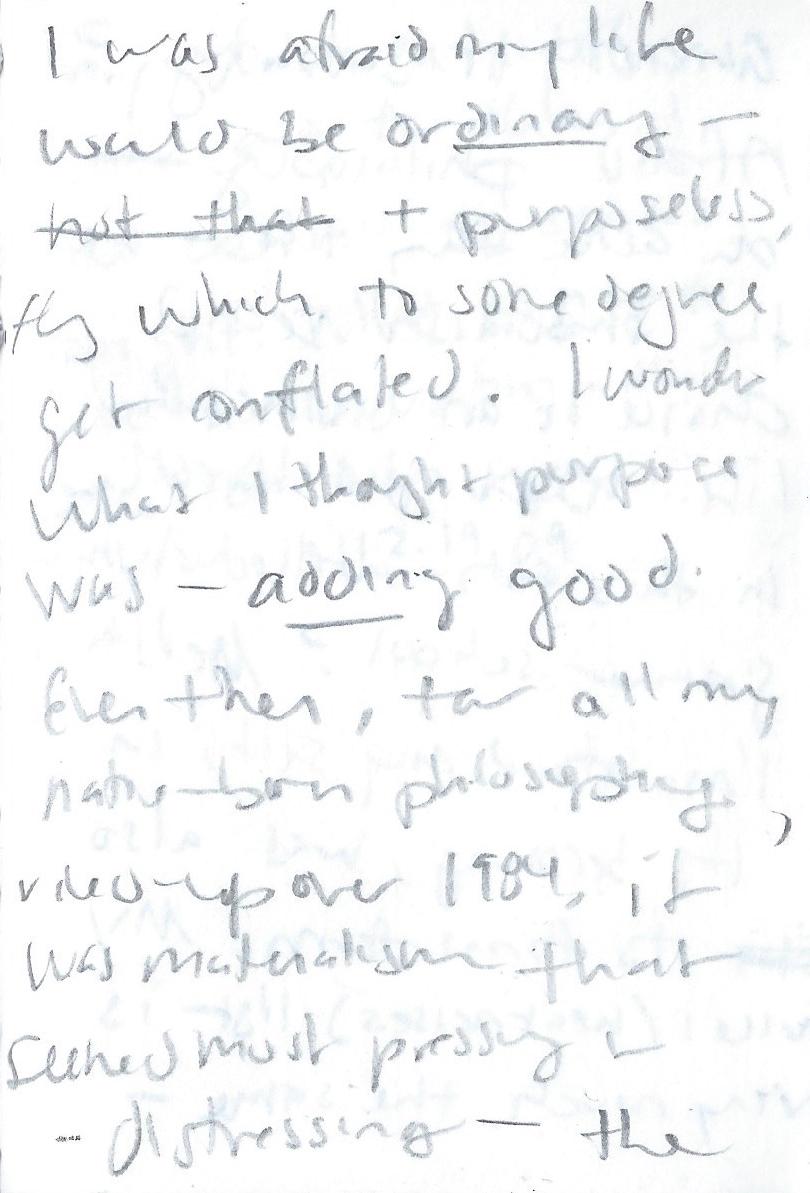 I was afraid my life
would be ordinary —
not that + purposeless,
which to some degree
get conflated. I wonder
what I thought purpose
was — adding good.
Even then, for all my
native-born philosophy,
over 1984, it
was materialism that
seemed most pressing
distressing — the